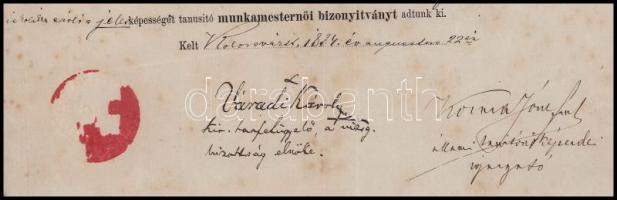 jeles képességet tanusító munkamesternői bizonyitványt adtunk ki.
Kelt Kolozsvárt, 1884. év augusztus 22én
Váradi Károly
kir. tanfelügyelő, a vizsg.
bizottság elnöke.
állami tanítónőképezdei
igazgató
darabanth